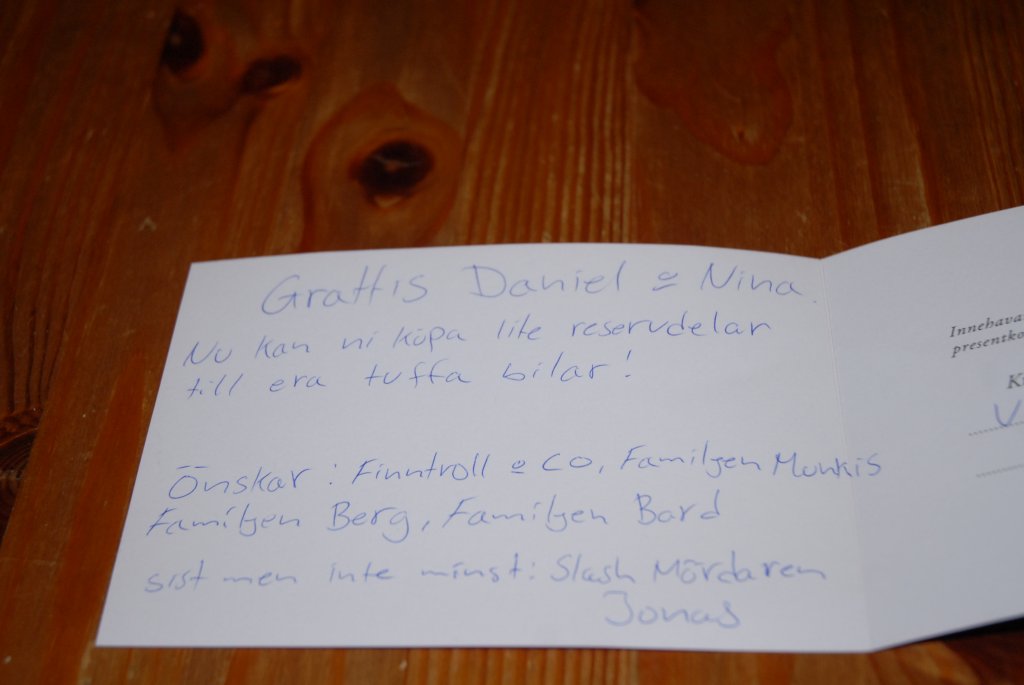 Grattis Daniel o Nina.
Nu kan ni köpa lite reservdelar
till era tuffa bilar!
Önskar: Finntroll o CO, Familjen Munkis
Familjen Berg, Familjen Bard
sist men inte minst: Slash Mördaren
Jonas
Innehava
presentko
K